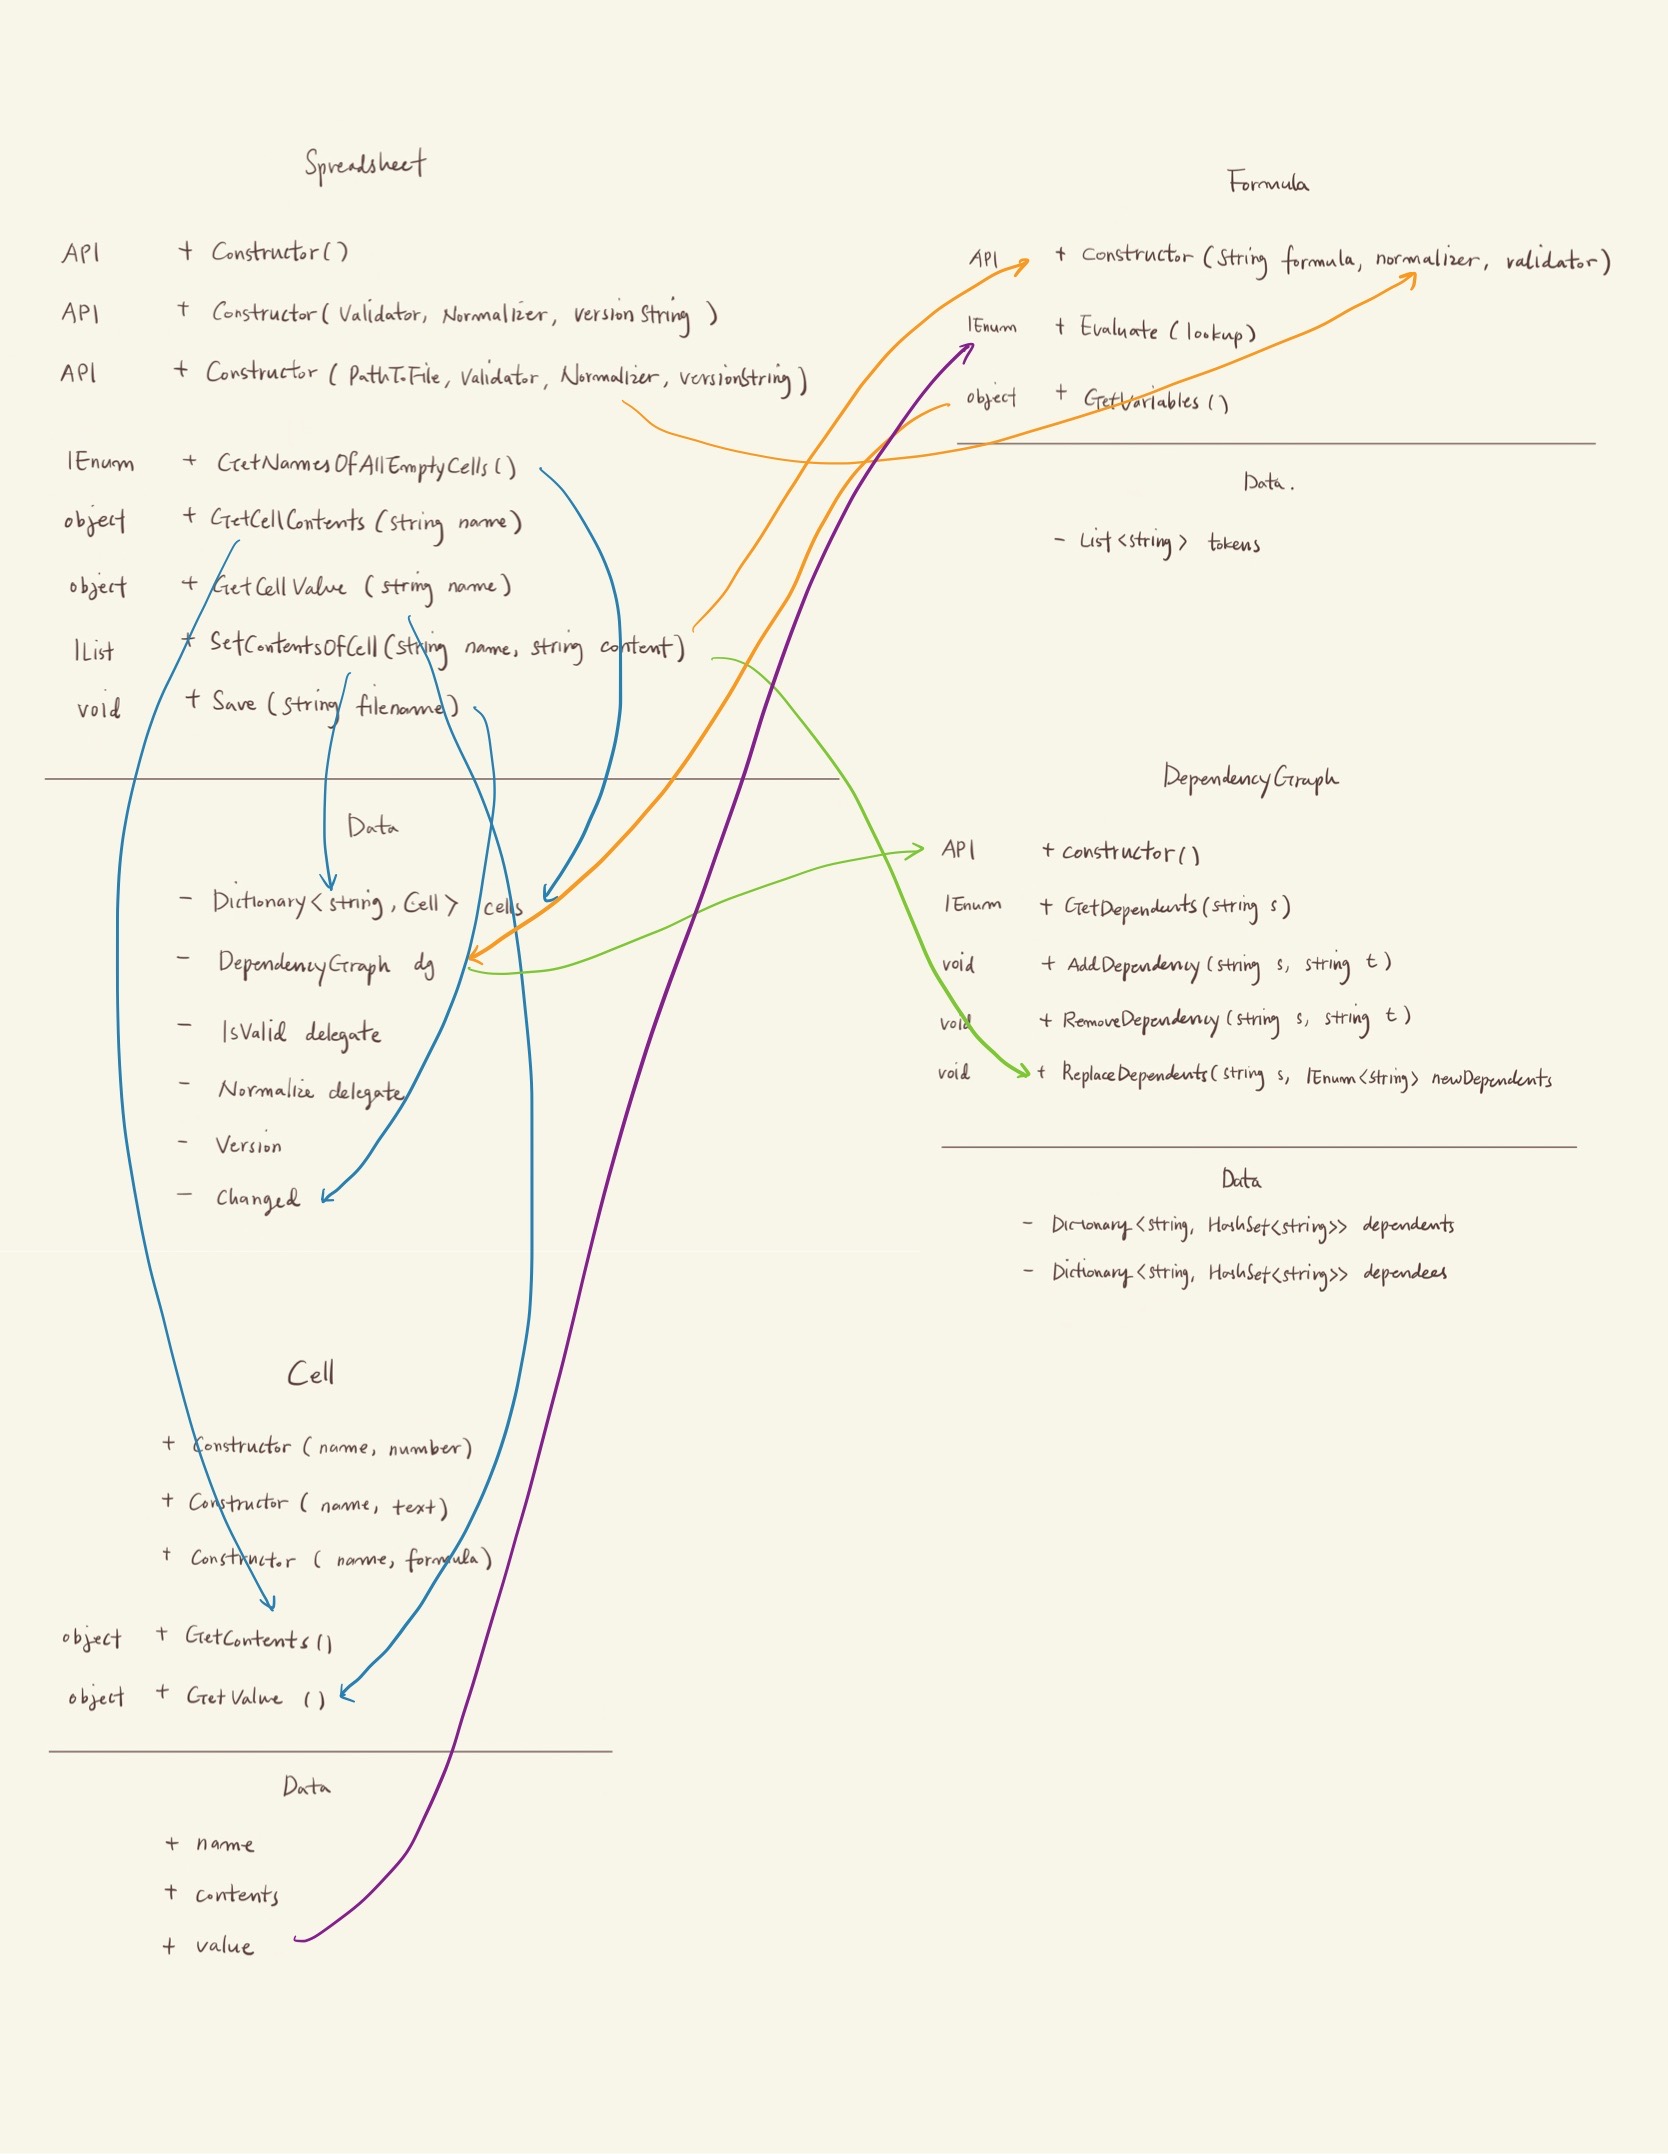 Spreadsheet
API + Constructor()
API + Constructor( Validator, Normalizer, version String )
API + Constructor ( PathToFile, Validator, Normalizer, versionString )
IEnum + GetNamesOfAllEmptyCells()
object + GetCellContents (string name)
object + GetCellValue (string name)
IList + SetContentsOfCell(string name, string content)
void + Save (string filename)
Data
- Dictionary<string, Cell> cells
- DependencyGraph dg
- IsValid delegate
- Normalize delegate
- Version
- Changed
Cell
+ Constructor ( name, number)
+ Constructor ( name, text)
+ Constructor ( name, formula)
object + GetContents()
object + GetValue ()
Data
+ name
+ contents
+ value
Formula
API + constructor (string formula, normalizer, validator)
IEnum + Evaluate (lookup)
object + GetVariables ()
Data.
- List<string> tokens
DependencyGraph
API + constructor()
IEnum + GetDependents(string s)
void + AddDependency (string s, string t)
void + RemoveDependency (string s, string t)
void + ReplaceDependents(string s, IEnum<string> newDependents
Data
- Dictionary<string, HashSet<string>> dependents
- Dictionary<string, HashSet<string>> dependees